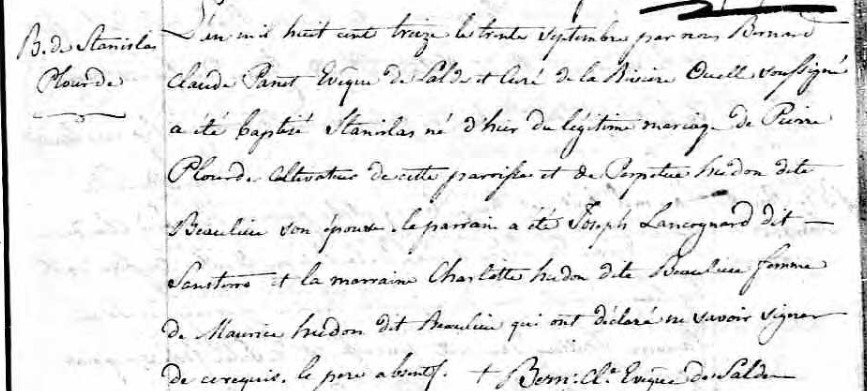 B. de Stanislas
Plourde
L'an mil huit cent treize le trente septembre par nous Bernard
Claude Panet Evêque de Saldes et Curé de la Rivière Ouell soussigné
a été baptisé Stanislas né d'hier du légitime mariage de Pierre
Plourde Cultivateur de cette parroisse et de Perpetue hudon dite
Beaulieu son épouse. le parrain a été Joseph Lancognard dit
Sansterre et la marraine Charlotte hudon dite Beaulieu femme
de Maurice hudon dit Beaulieu qui ont déclaré ne savoir signer
de ce requis. le pere absent. + Bern: Cl. Evêque de Saldes